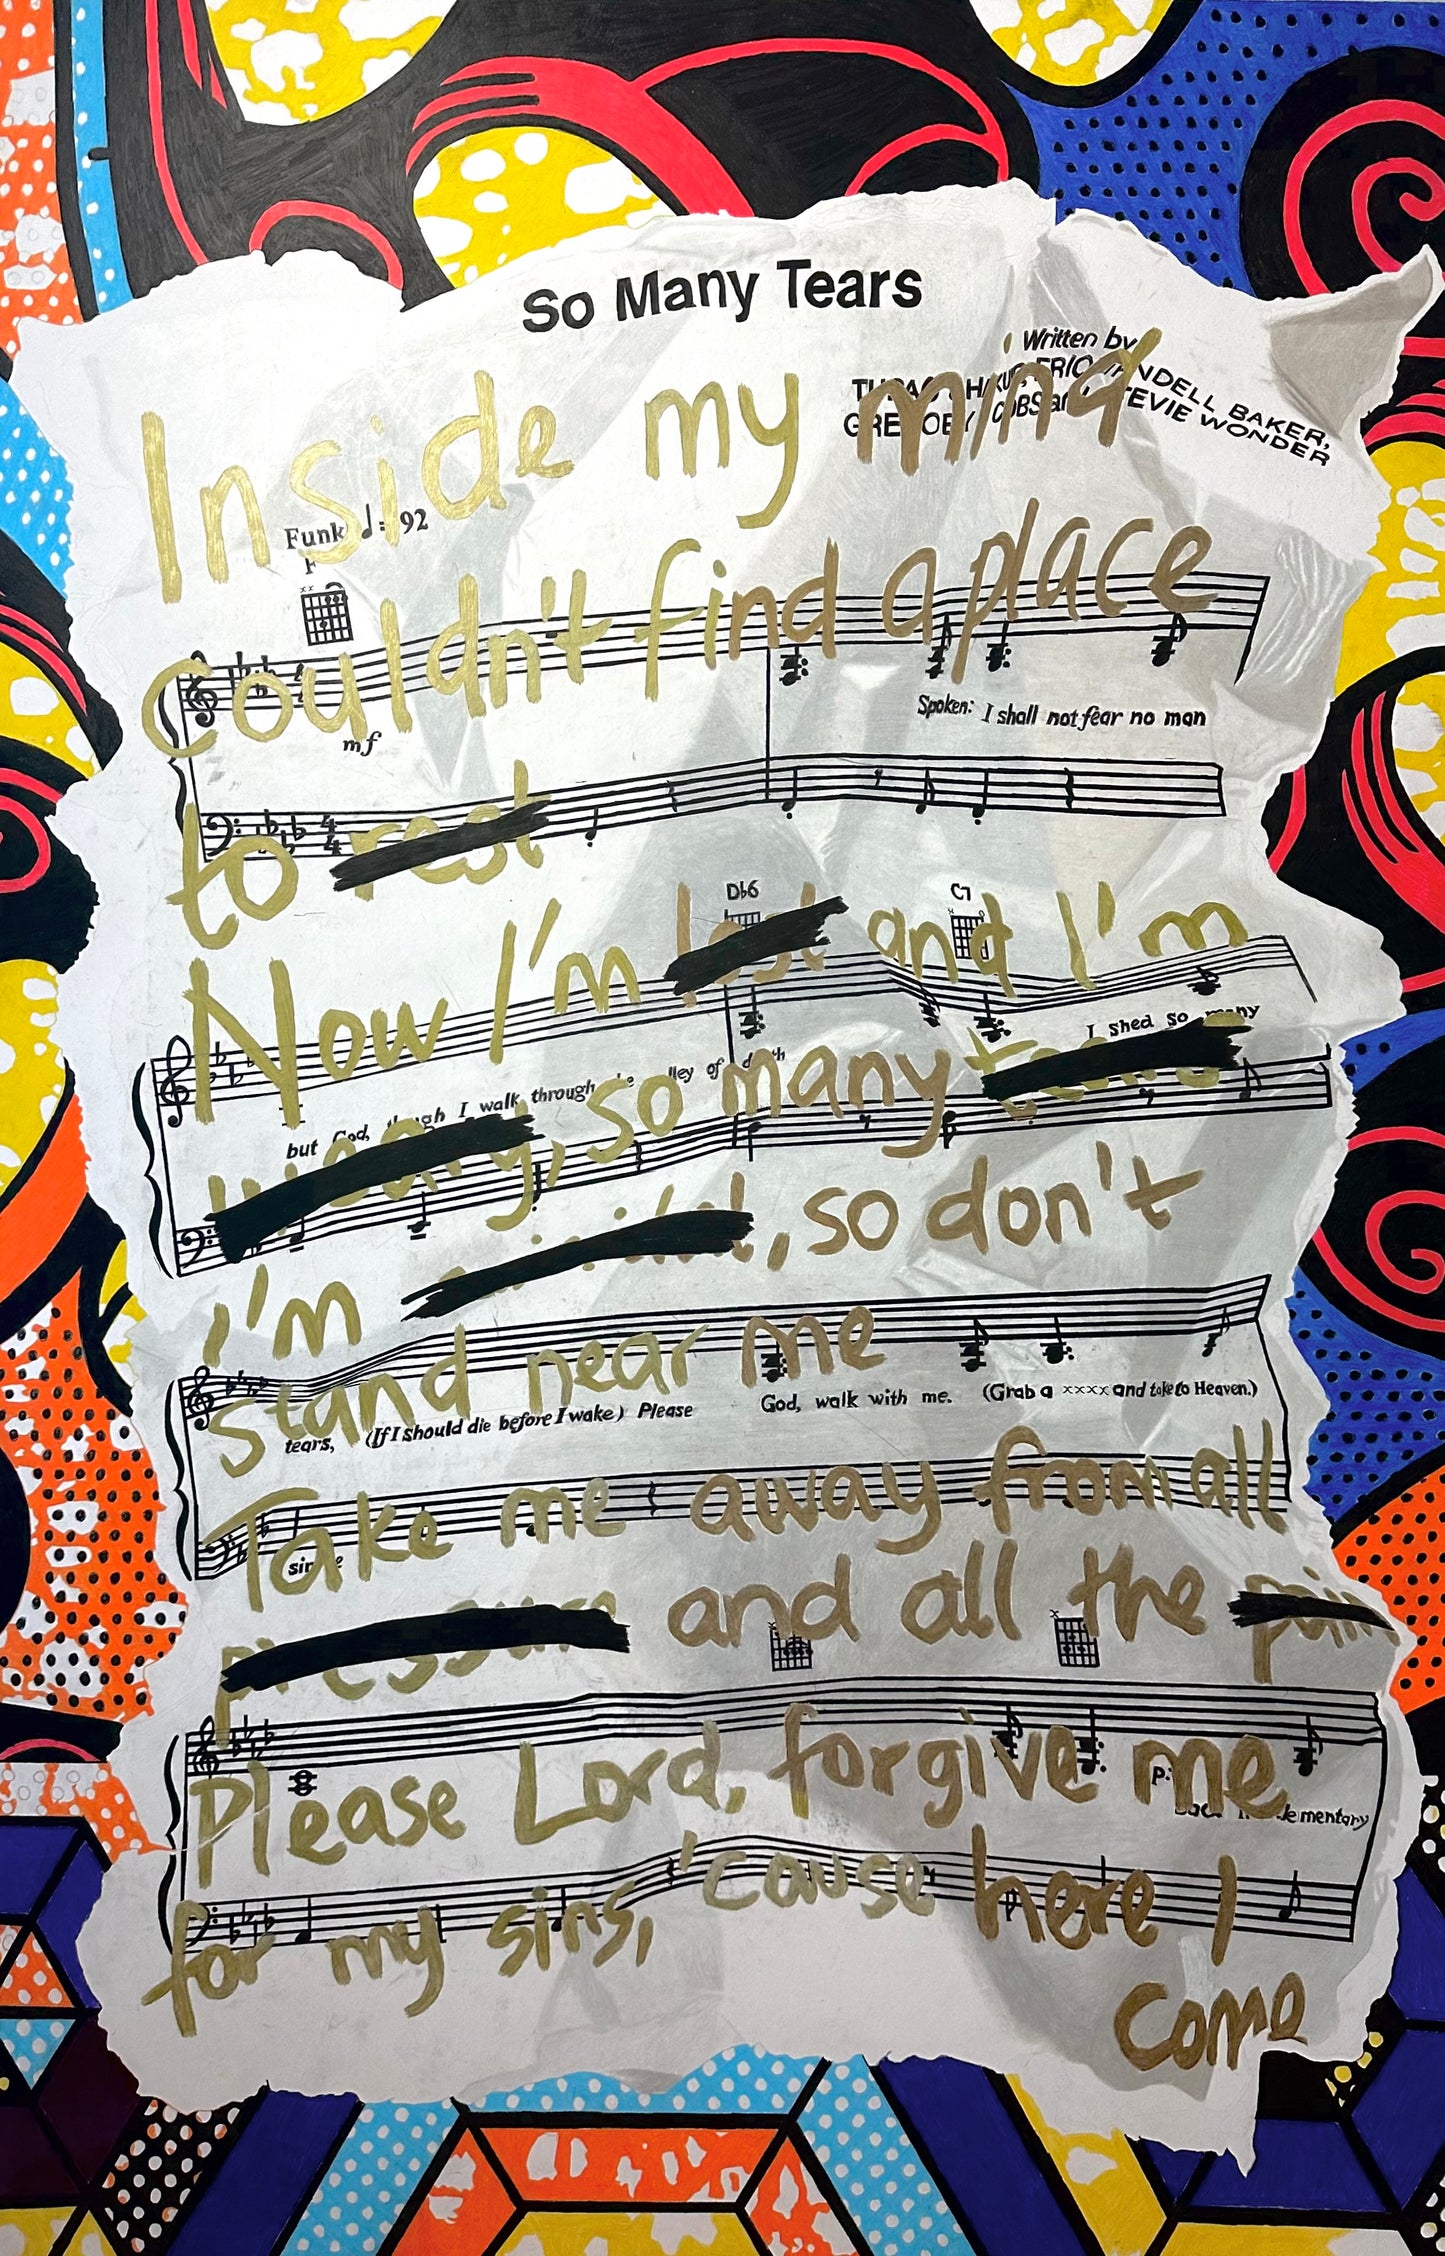 So Many Tears
Written by
TUPAC SHAKUR, ERIC WENDELL BAKER,
GREGORY JACOBS and STEVIE WONDER
Inside my mind
Funk ♩= 92
F
Couldn't find a place
mf
Spoken: I shall not fear no man
to rest
Db6 C7
Now I'm lost and I'm
I shed so many
but God, though I walk through the valley of death
weary, so many tears
I'm suicidal, so don't
stand near me
tears, (If I should die before I wake) Please God, walk with me. (Grab a xxxx and take to Heaven.)
Take me away from all
pressure and all the pain
Please Lord, forgive me
Back in elementary
for my sins, 'cause here I
come